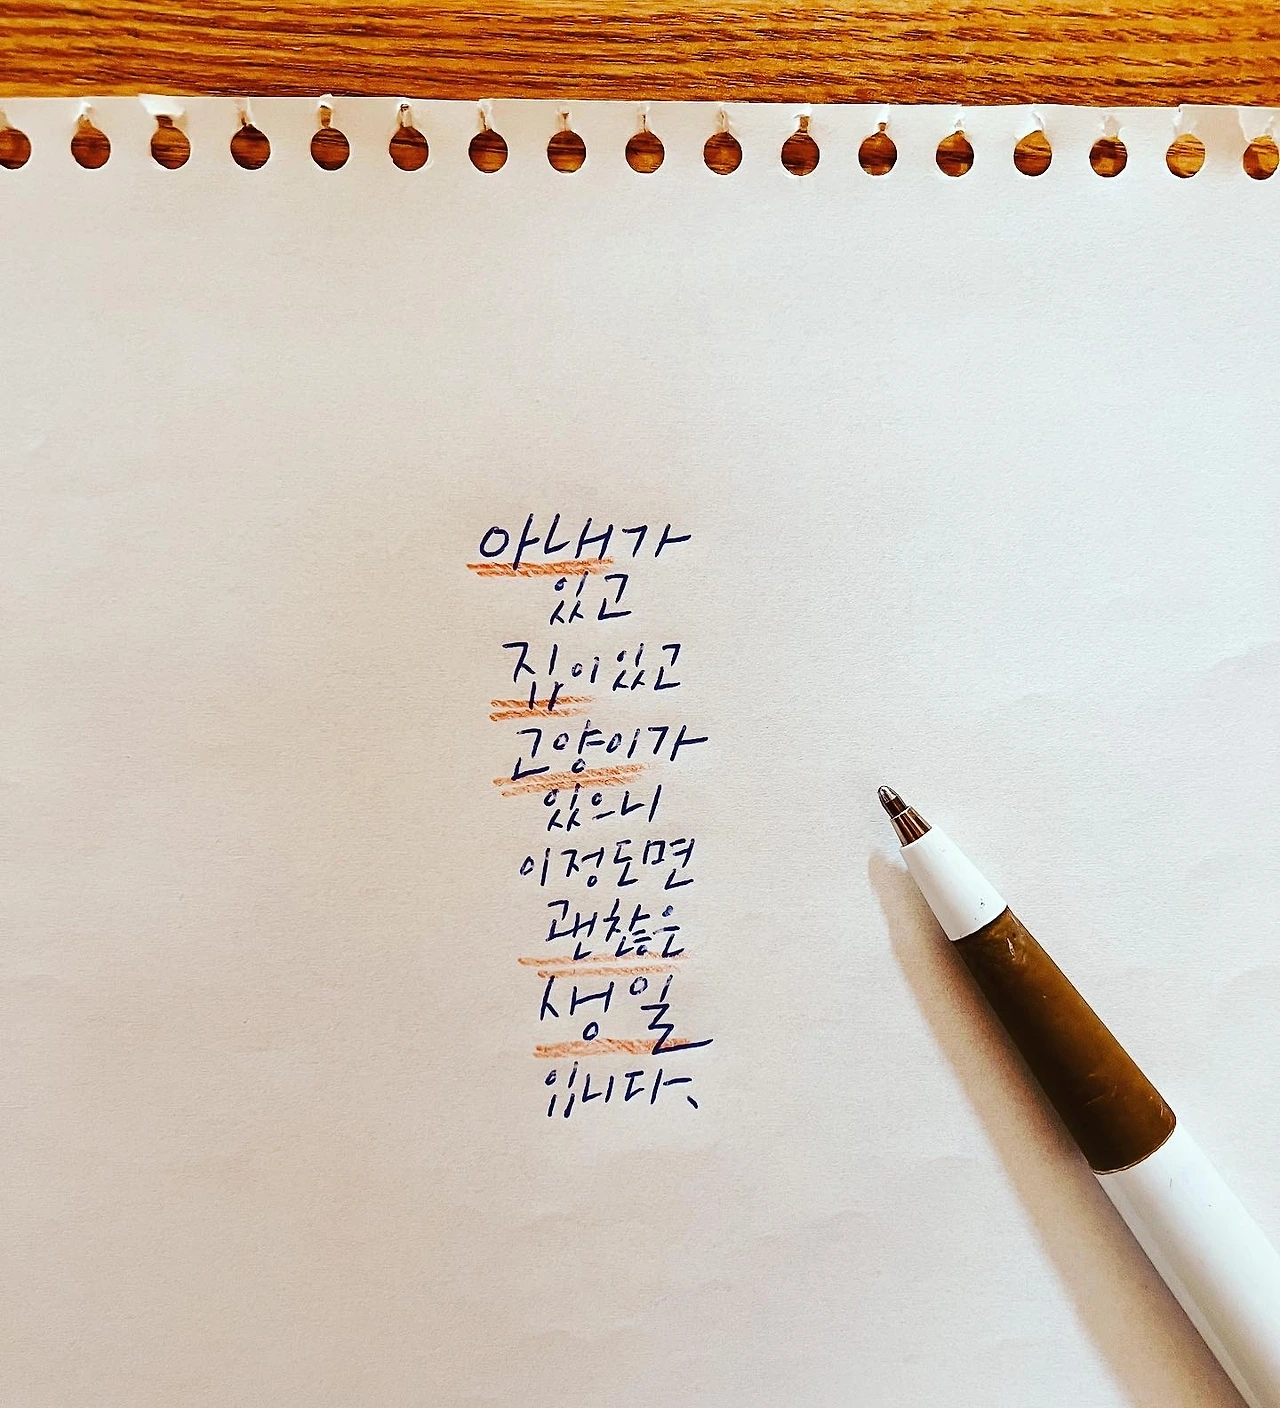 아내가
있고
집이 있고
고양이가
있으니
이정도면
괜찮은
생일
입니다.